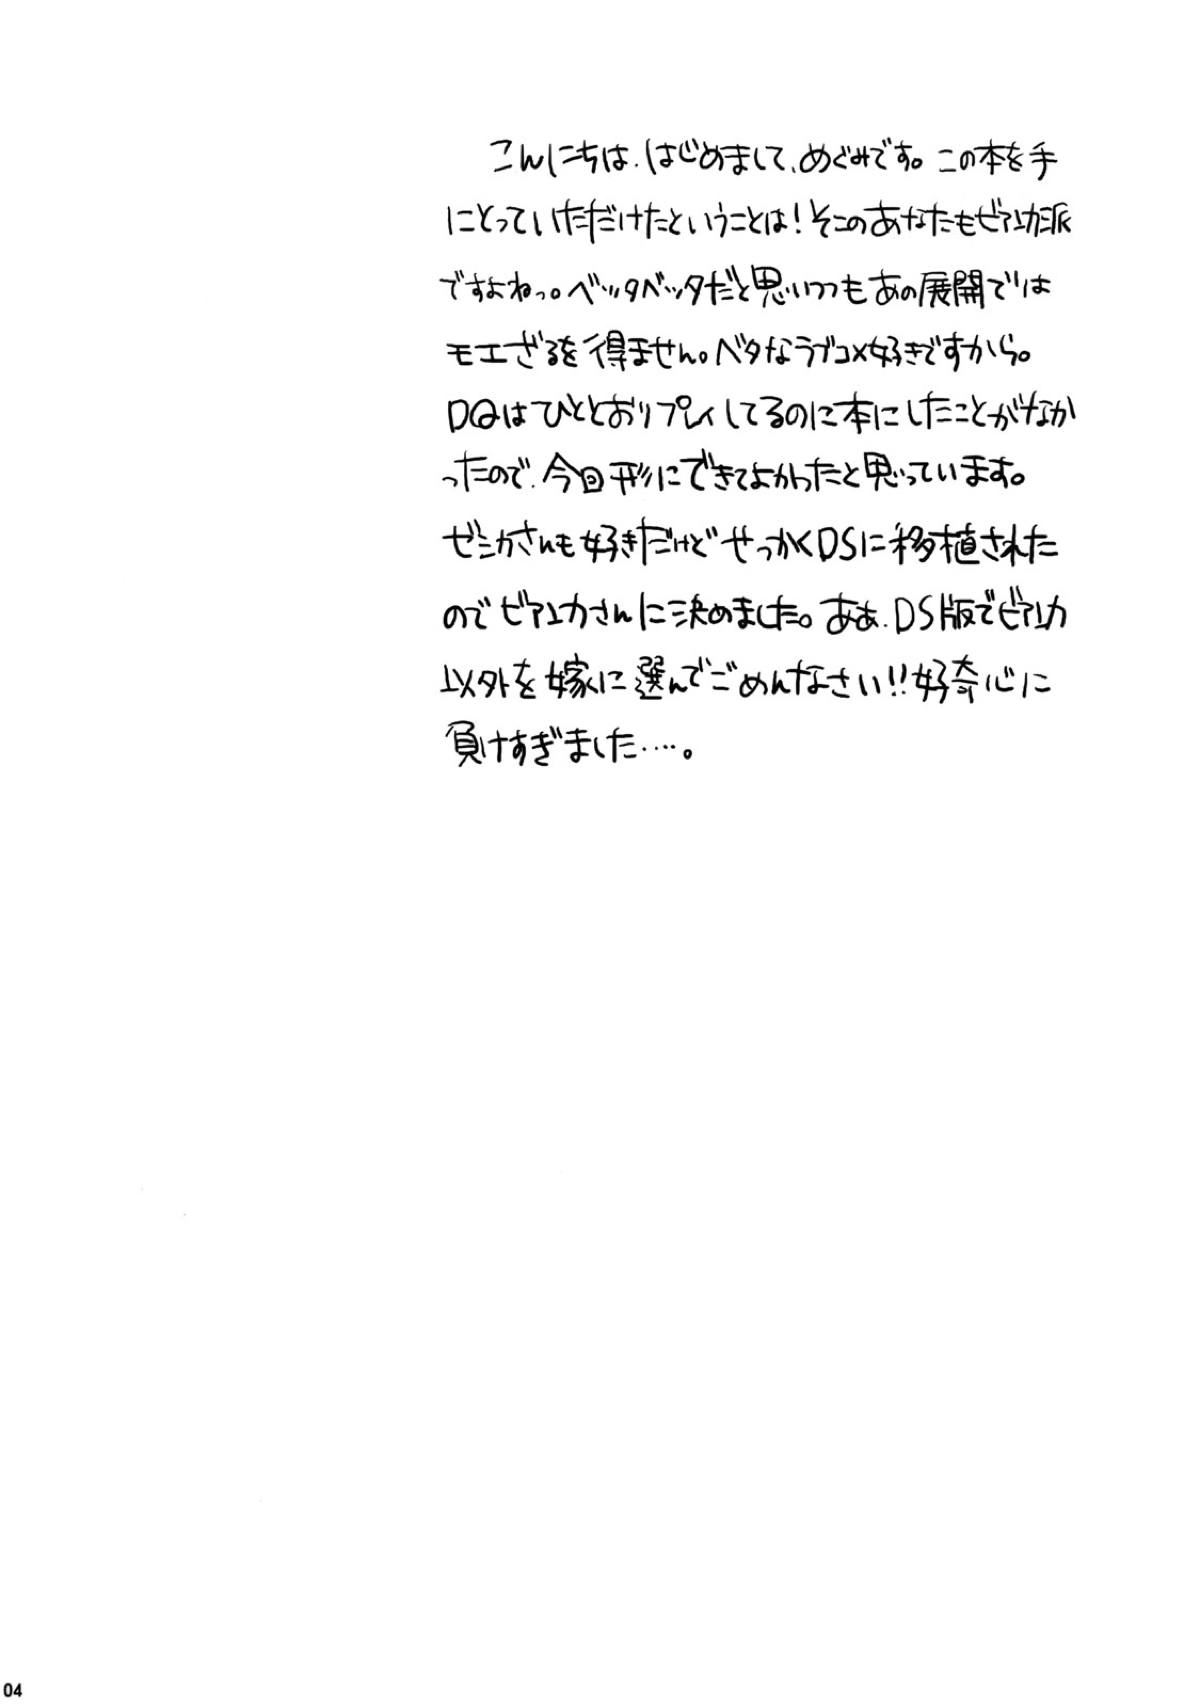 こんにちは、はじめまして、めぐみです。この本を手
にとっていただけたということは！そこのあなたもビアンカ派
ですよねっ。ベッタベッタだと思いつつもあの展開では
モエざるを得ません。ベタなラブコメ好きですから。
DQはひととおりプレイしてるのに本にしたことがなか
ったので、今回形にできてよかったと思っています。
ゼシカさんも好きだけどせっかくDSに移植された
のでビアンカさんに決めました。ああ、DS版でビアンカ
以外を嫁に選んでごめんなさい!!好奇心に
負けすぎました….。
04